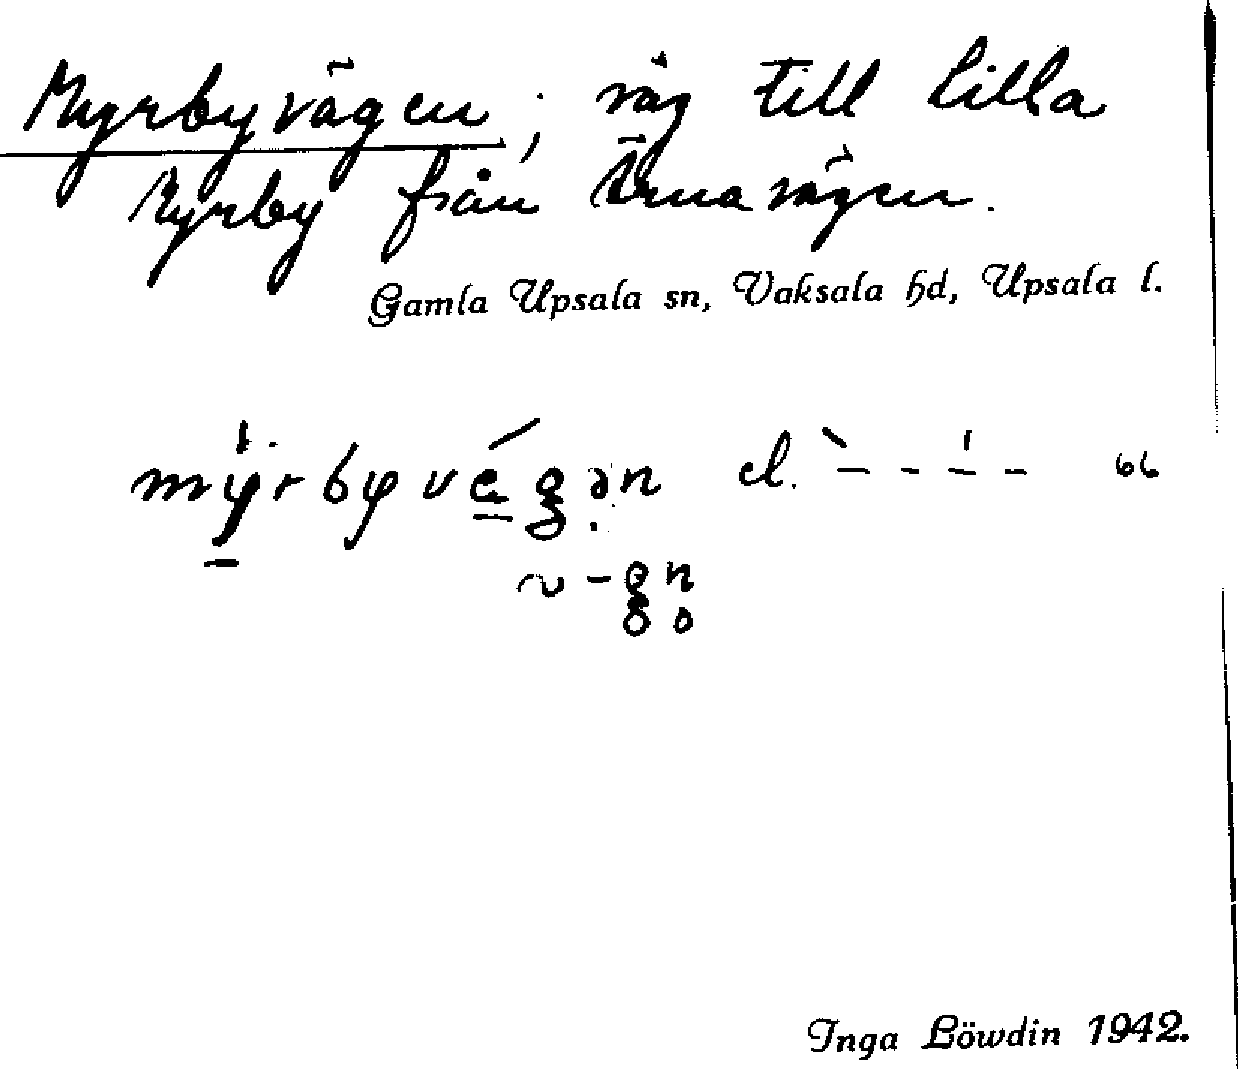 Myrbyvägen; väg till Lilla
Myrby från Ärnavägen.
Gamla Upsala sn, Vaksala hd, Upsala l.
el. 66
Inga Löwdin 1942.